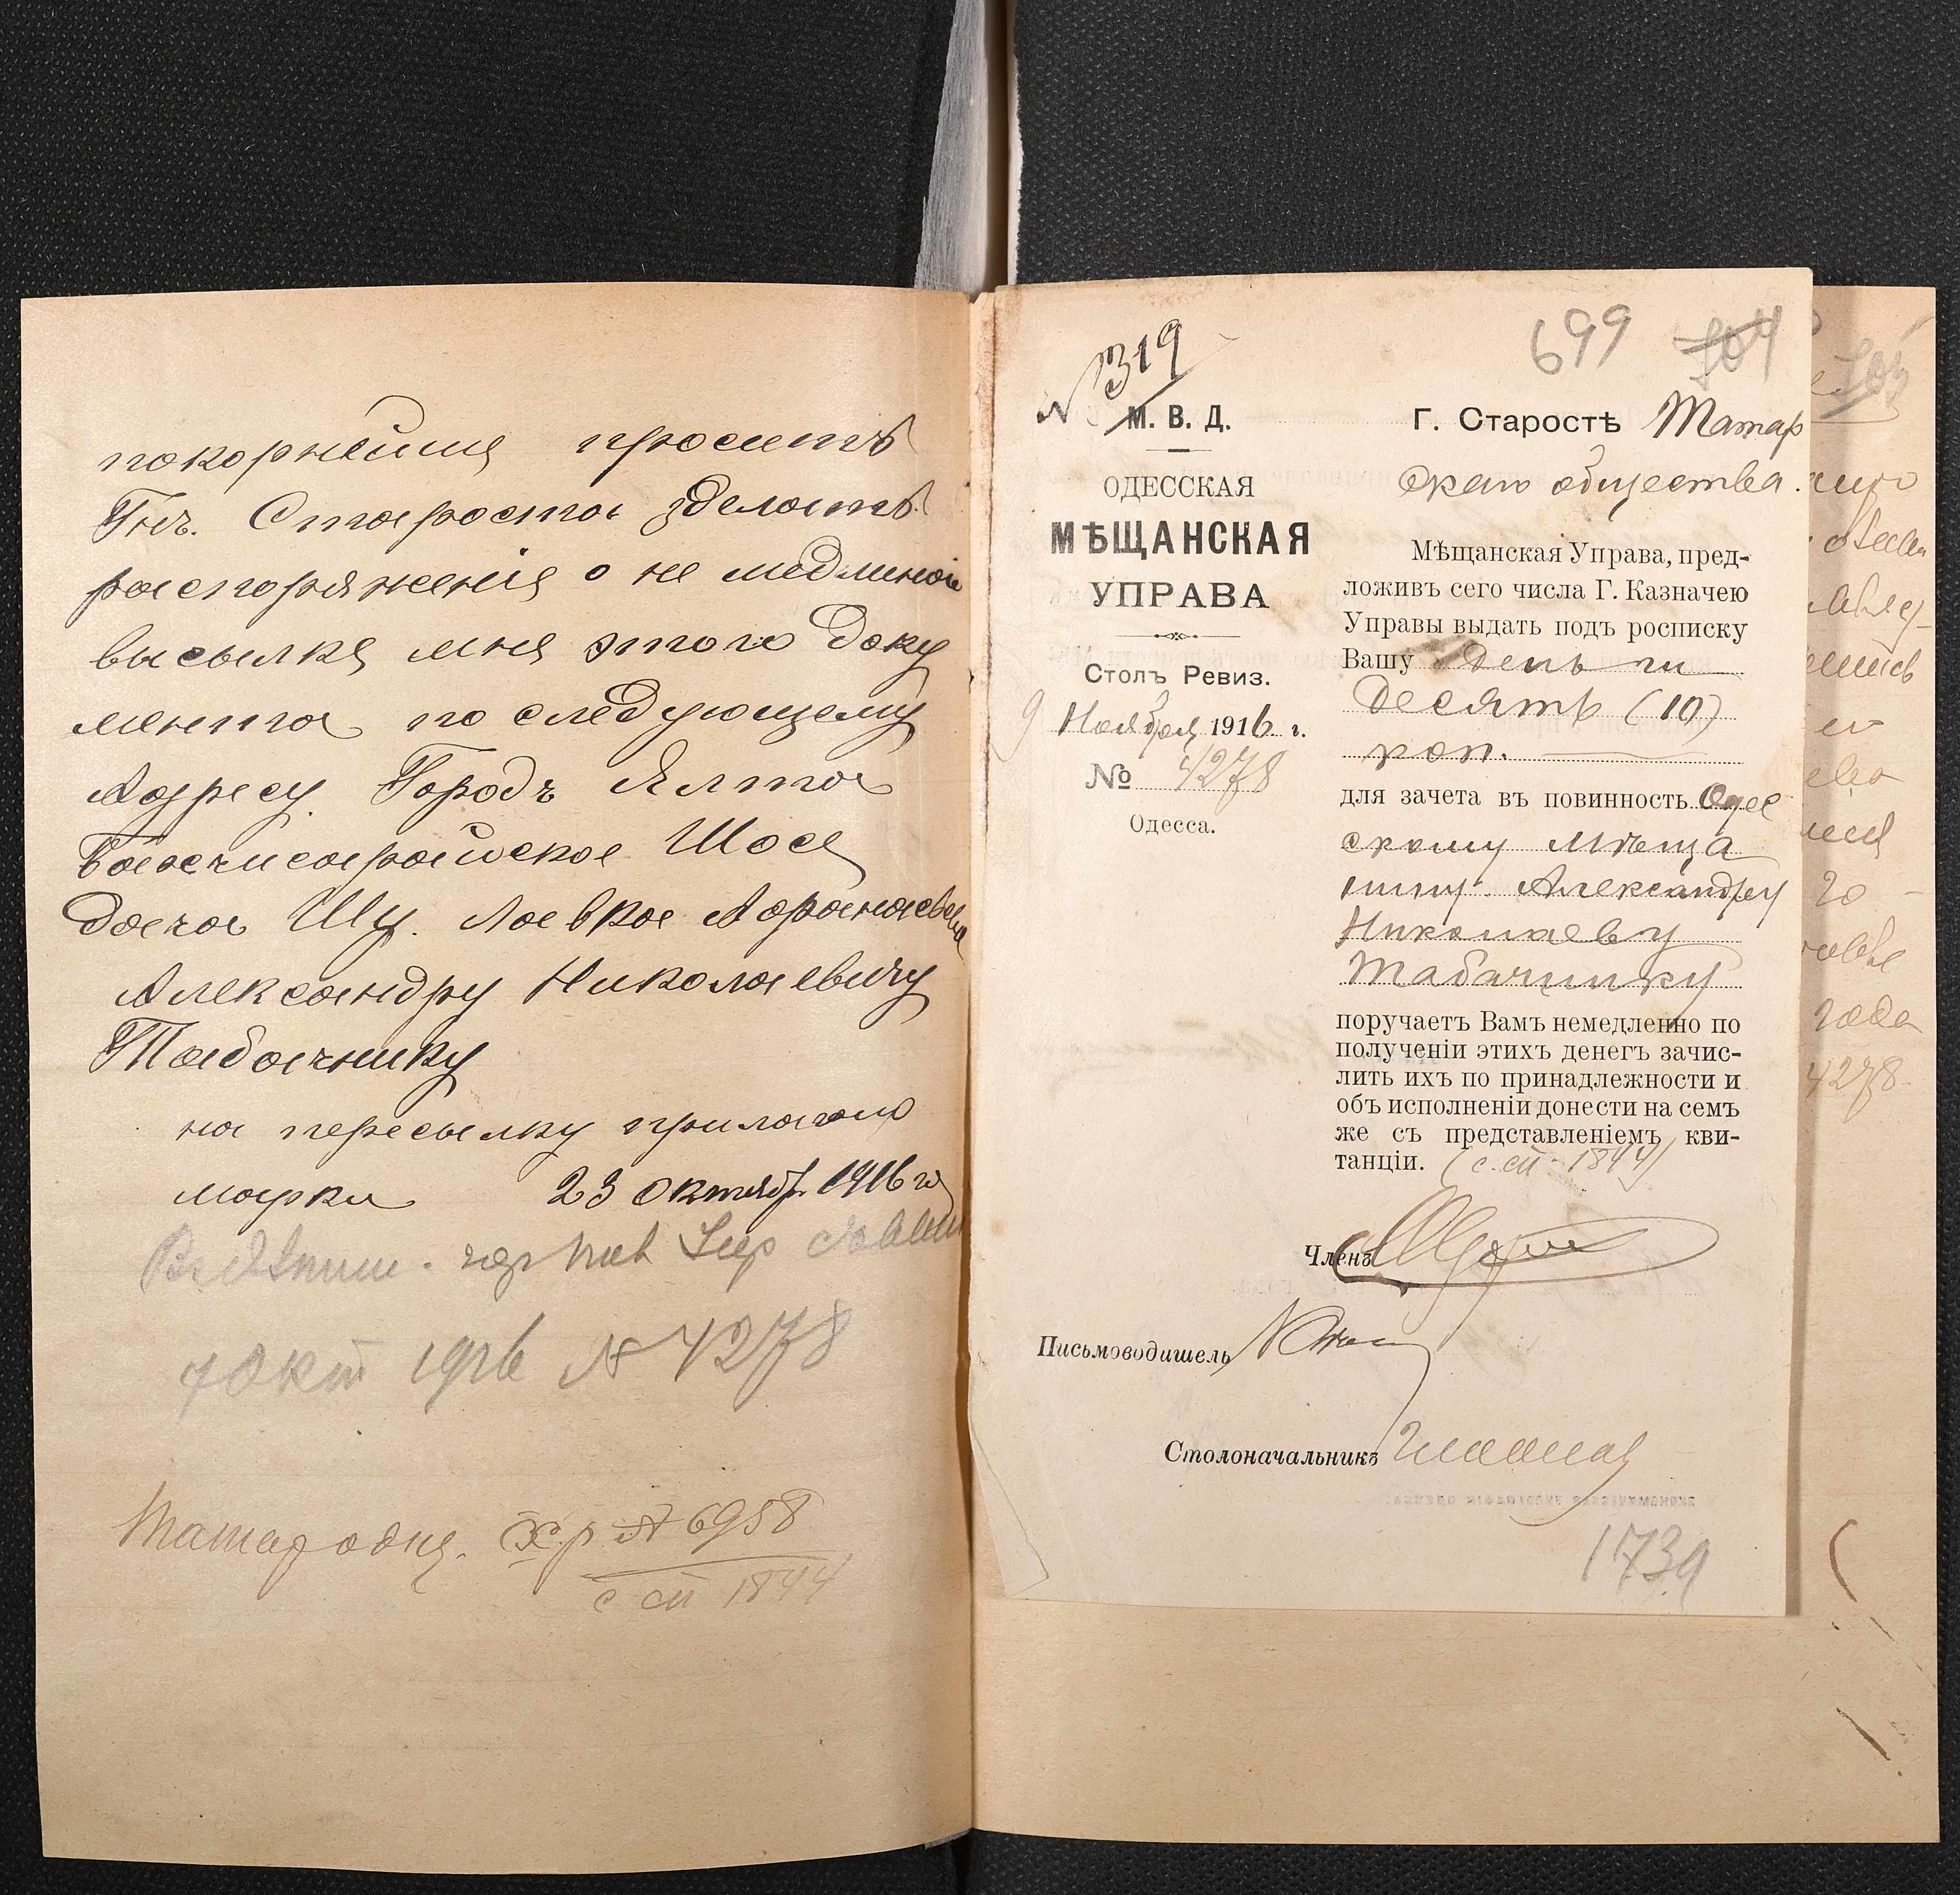 покорнейше просить
Гнъ. Староста зделать
распоряженія о не медленой
высылке мне этого доку
мента по следующему
Адресу. Городъ Ялта
Бахчисарайское Шосе
дача Шу. Лавка Афанасьева
Александру Николаевичу
Табачнику
на пересылку прилагаю
марки 23 Октябр. 1916 го
7 Окт 1916 № 4278
Татар общ. № 6958
с сп 1844
№ 319
699 704
М. В. Д.
ОДЕССКАЯ
МѢЩАНСКАЯ
УПРАВА
Столъ Ревиз.
9 Ноября 1916 г.
№ 4278
Одесса.
Г. Старостѣ Татар
скаго общества.
Мѣщанская Управа, пред-
ложивъ сего числа Г. Казначею
Управы выдать подъ росписку
Вашу день ги
десять (10)
коп.
для зачета въ повинность Одес
скому Мѣща
нину Александру
Николаеву
Табачнику
поручаетъ Вамъ немедленно по
полученіи этихъ денегъ зачис-
лить ихъ по принадлежности и
объ исполненіи донести на семъ
же съ представленіемъ кви-
танціи. (с. сп. 1844)
Членъ
Письмоводитель
Столоначальникъ
1739
года
4278